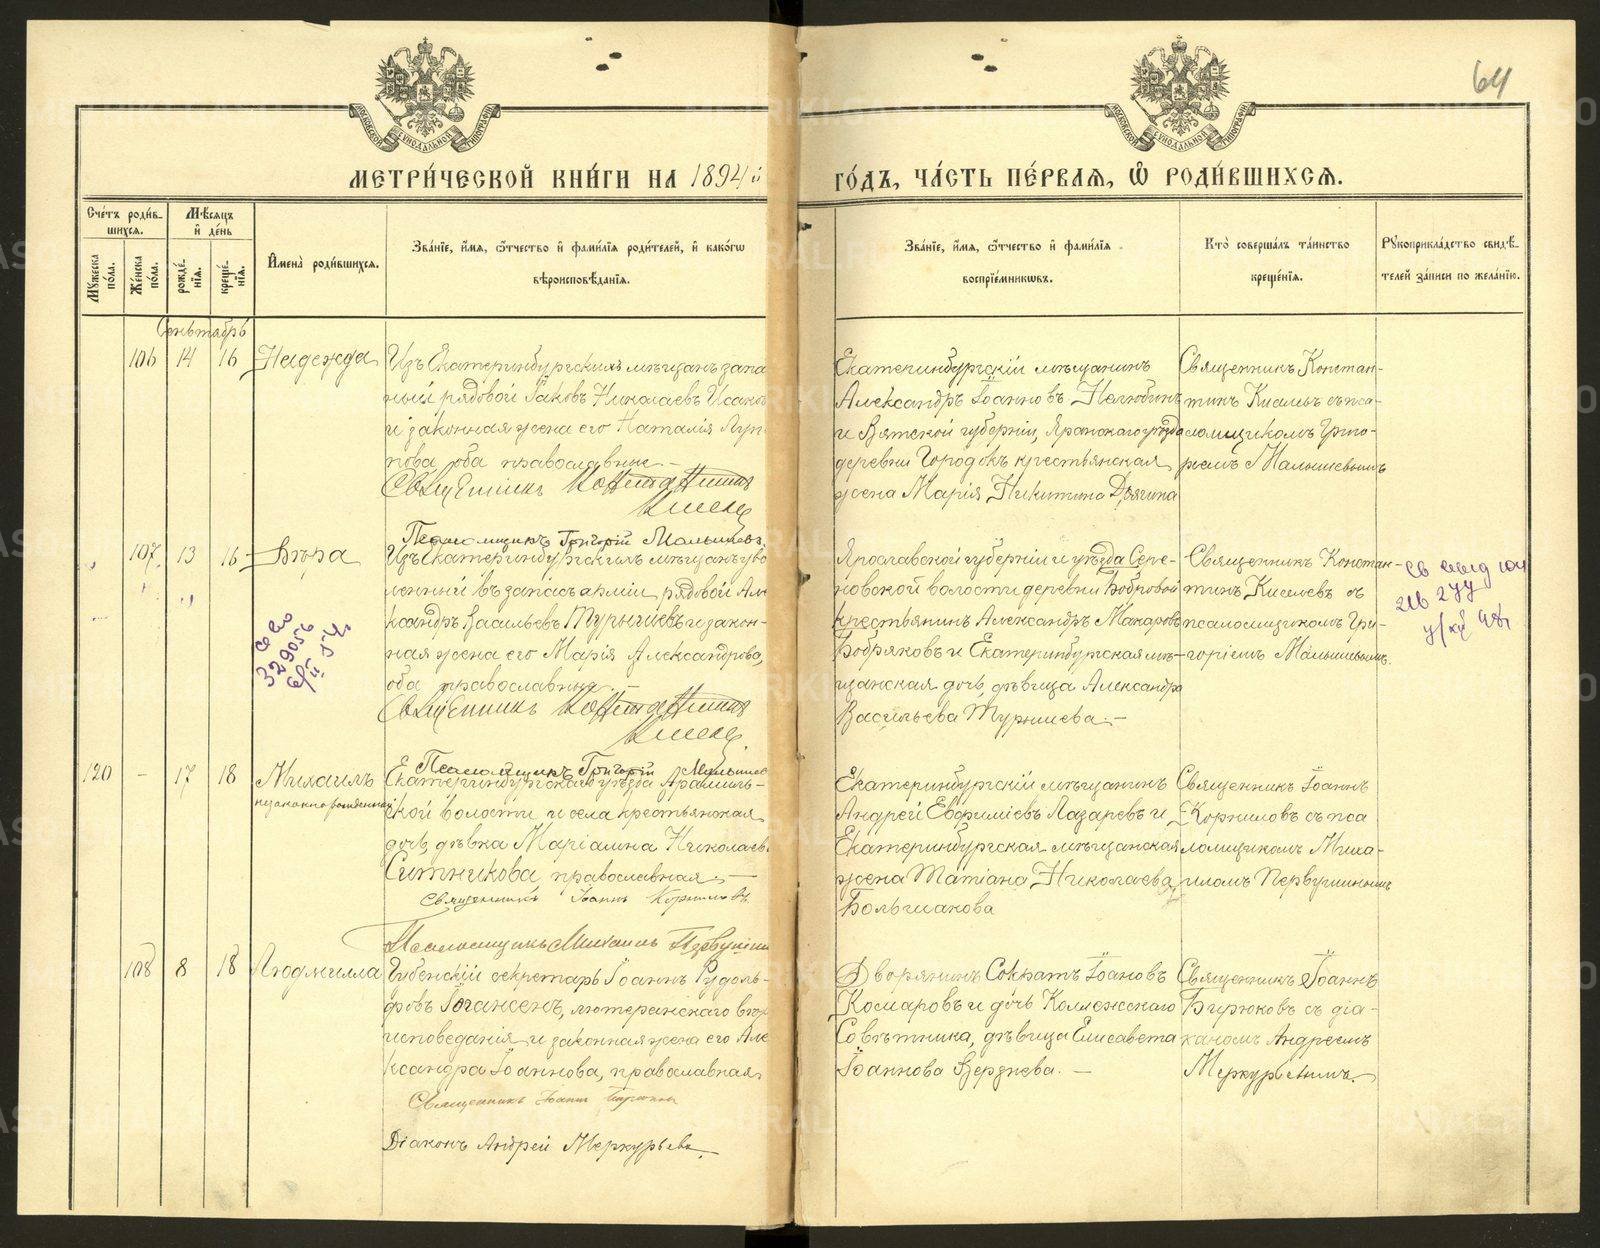 64
МЕТРИ́ЧЕСКОЙ КНИ́ГИ НА 1894 й
ГО́ДЪ, ЧА́СТЬ ПЕ́РВАЯ, Ѡ҆ РОДИ́ВШИХСЯ.
Сче́тъ роди́в-
шихся.
Мꙋ́жеска по́ла.
Же́нска по́ла.
Мѣ́сяцъ и҆ де́нь
рожде́-нїя.
креще́-нїя.
И҆мена̀ роди́вшихся.
Зва́нїе, и҆́мя, ѻ҆́тчество и҆ фами́лїя роди́телей, и҆ како́гѡ
вѣроисповѣ́данїя.
Зва́нїе, и҆́мя, ѻ҆́тчество и҆ фами́лїя
воспрїе́мникѡвъ.
Кто̀ соверша́лъ та́инство
креще́нїя.
Рꙋкоприкла́дство свидѣ́-
телей за́писи по жела́нїю.
Сентябрь
106 14 16 Надежда
Изъ Екатеринбургскихъ мѣщанъ запа
ный рядовой Іаковъ Николаевъ Исаков
и законная жена его Наталія Луп
пова, оба православные.
Священникъ Константинъ
Киселев
Псаломщикъ Григорій Малышевъ
Екатеринбургскій мѣщанинъ
Александръ Іоанновъ Нелюбинъ
и Вятской губерніи, Яранскаго уѣзда
деревни Городокъ крестьянская
жена Марія Никитина Дрягина
Священникъ Констан-
тинъ Киселевъ съ пса-
ломщикомъ Григо-
ріемъ Малышевымъ
107 13 16 Вѣра
Изъ Екатеринбургскихъ мѣщанъ уво
ленный въ запасъ арміи рядовой Але
ксандръ Васильевъ Турышевъ и закон-
ная жена его Марія Александрова,
оба православные.
Священникъ Константинъ
Киселев
Псаломщикъ Григорій Малышев
Ярославской губерніи и уѣзда Сере-
новской волости деревни Бобровой
крестьянинъ Александръ Макаровъ
Бобряковъ и Екатеринбургская мѣ-
щанская дочь, дѣвица Александра
Васильева Турышева.
Священникъ Констан-
тинъ Киселевъ съ
псаломщикомъ Гри-
горіемъ Малышевымъ.
120 - 17 18 Михаилъ
незаконнорожденный
Екатеринбургскаго уѣзда Арамиль-
ской волости и села крестьянская
дочь, дѣвка Маріамна Николаева
Ситникова, православная.
Священникъ Іоаннъ Корниловъ.
Псаломщикъ Михаилъ Первушин
Екатеринбургскій мѣщанинъ
Андрей Евфиміевъ Лазаревъ и
Екатеринбургская мѣщанская
жена Татіана Николаева
Большакова
Священникъ Іоаннъ
Корниловъ съ пса
ломщикомъ Миха-
иломъ Первушинымъ
108 8 18 Людмилла
Губернскій секретарь Іоаннъ Рудоль-
фовъ Іогансенъ, лютеранскаго вѣро
исповеданія и законная жена его Але
ксандра Іоаннова, православная.
Священникъ Іоаннъ Бирюковъ
Діаконъ Андрей Меркурьевъ.
Дворянинъ Сократъ Іоановъ
Комаровъ и дочь Коллежскаго
Совѣтника, дѣвица Елисавета
Іоаннова
Священникъ Іоаннъ
Бирюковъ съ діа-
кономъ Андреемъ
Меркурьевымъ.